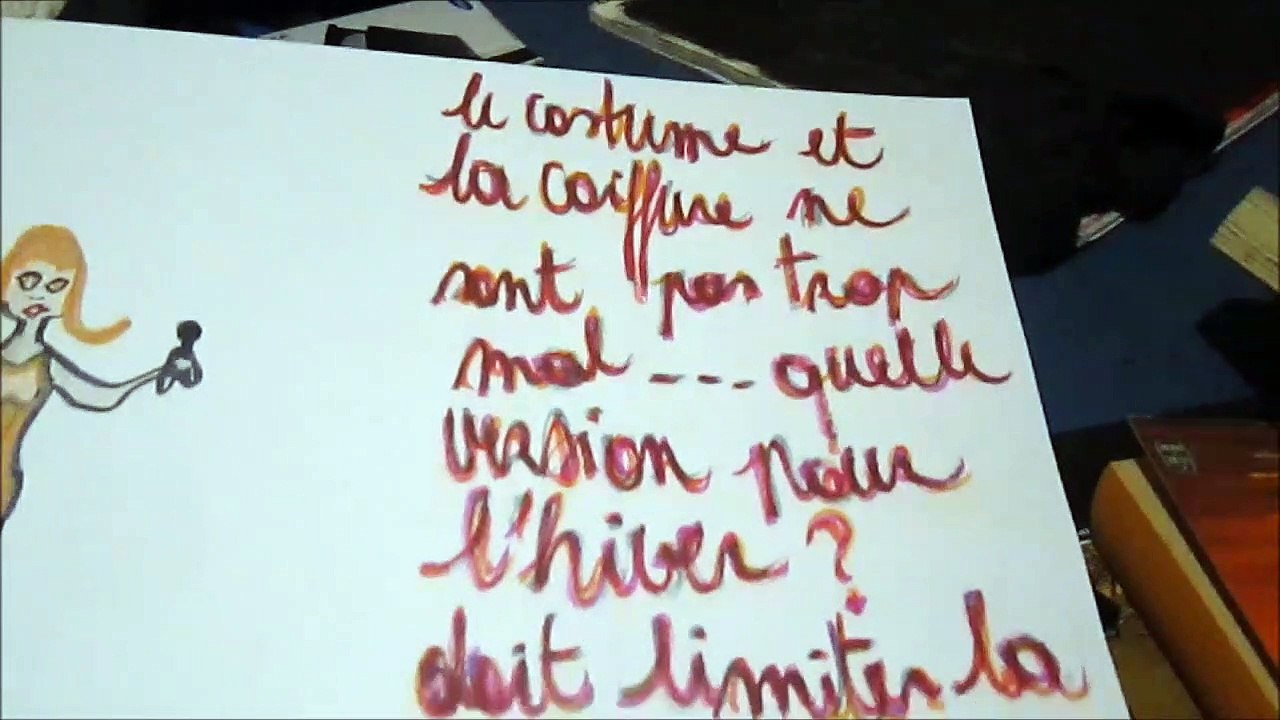 le costume et
la coiffure ne
sont pas trop
mal ---quelle
version pour
l'hiver ?
doit limiter la